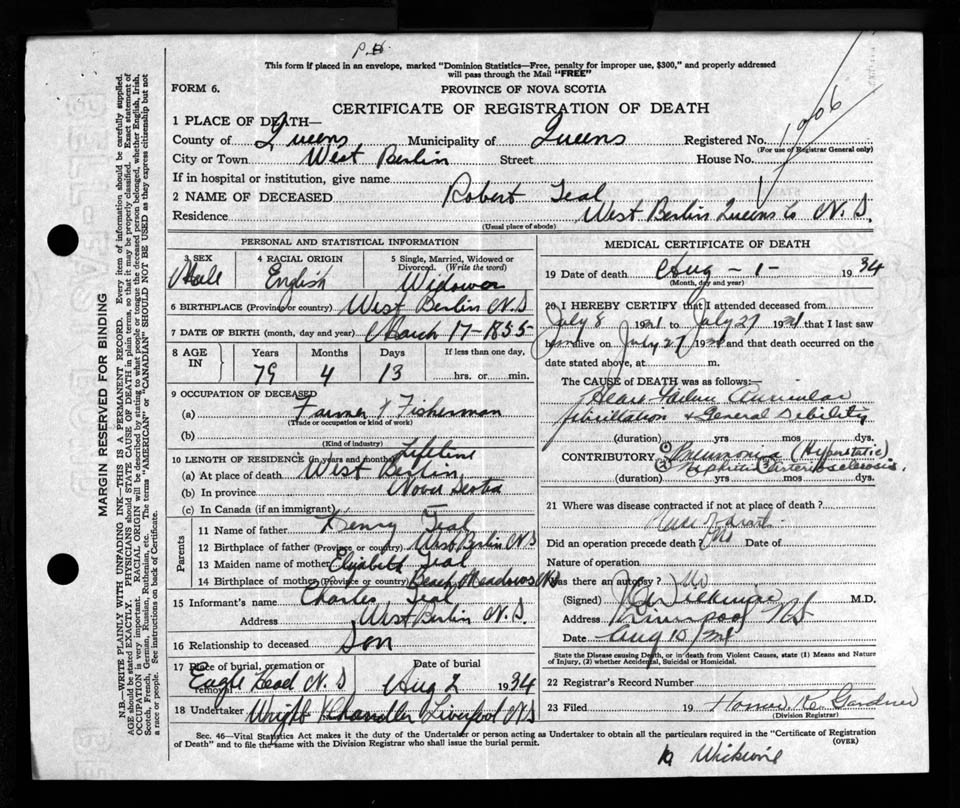 P.H.
This form if placed in an envelope, marked "Dominion Statistics—Free, penalty for improper use, $300," and properly addressed
will pass through the Mail "FREE"
FORM 6.
PROVINCE OF NOVA SCOTIA
CERTIFICATE OF REGISTRATION OF DEATH
1 PLACE OF DEATH—
County of Queens Municipality of Queens Registered No. 1906
(For use of Registrar General only)
City or Town West Berlin Street House No.
If in hospital or institution, give name
2 NAME OF DECEASED Robert Teal
Residence West Berlin Queens Co N.S.
(Usual place of abode)
PERSONAL AND STATISTICAL INFORMATION
3 SEX 4 RACIAL ORIGIN 5 Single, Married, Widowed or
Divorced. (Write the word)
Male English Widower
6 BIRTHPLACE (Province or country) West Berlin N.S
7 DATE OF BIRTH (month, day and year) March 17-1855-
8 AGE IN Years Months Days If less than one day,
79 4 13 hrs. or min.
9 OCCUPATION OF DECEASED
(a) Farmer & Fisherman
(Trade or occupation or kind of work)
(b)
(Kind of industry)
10 LENGTH OF RESIDENCE (in years and months) Lifetime
(a) At place of death West Berlin
(b) In province Nova Scotia
(c) In Canada (if an immigrant)
Parents
11 Name of father Henry Teal
12 Birthplace of father (Province or country) West Berlin N.S
13 Maiden name of mother Elizabeth Teal
14 Birthplace of mother (Province or country) Beach Meadows NS
15 Informant's name Charles Teal
Address West Berlin N.S.
16 Relationship to deceased Son
17 Place of burial, cremation or removal Date of burial
Eagle Head N.S Aug 2 1934
18 Undertaker Wright Chandler Liverpool NS
MEDICAL CERTIFICATE OF DEATH
19 Date of death Aug - 1 - 1934
(Month, day and year)
20 I HEREBY CERTIFY that I attended deceased from
July 8 1934 to July 27 1934 that I last saw
him alive on July 27 1934 and that death occurred on the
date stated above, at m.
The CAUSE of DEATH was as follows:
Heart Failure Auricular
fibrillation & General Debility
(duration) yrs mos dys.
CONTRIBUTORY (1) Pneumonia (Hypostatic)
(2) Nephritis (3) Arteriosclerosis.
(duration) yrs mos dys.
21 Where was disease contracted if not at place of death?
Did an operation precede death? No Date of
Nature of operation
Was there an autopsy? No
(Signed) M.D.
Address Liverpool NS.
Date Aug 10/34
State the Disease causing Death, or in death from Violent Causes, state (1) Means and Nature
of Injury, (2) whether Accidental, Suicidal or Homicidal.
22 Registrar's Record Number
23 Filed 19 Gardner
(Division Registrar)
Sec. 46—Vital Statistics Act makes it the duty of the Undertaker or person acting as Undertaker to obtain all the particulars required in the "Certificate of Registration
of Death" and to file the same with the Division Registrar who shall issue the burial permit.
(OVER)
MARGIN RESERVED FOR BINDING
N.B.—WRITE PLAINLY WITH UNFADING INK—THIS IS A PERMANENT RECORD. Every item of information should be carefully supplied.
AGE should be stated EXACTLY. PHYSICIANS should STATE CAUSE OF DEATH in plain terms, so that it may be properly classified. Exact statement of
OCCUPATION is very important. RACIAL ORIGIN will be described by stating to what people or tongue the deceased person belonged, whether English, Irish,
Scotch, French, German, Russian, Ruthenian, etc. The terms "AMERICAN" or "CANADIAN" SHOULD NOT BE USED as they express citizenship but not
a race or people. See instructions on back of Certificate.